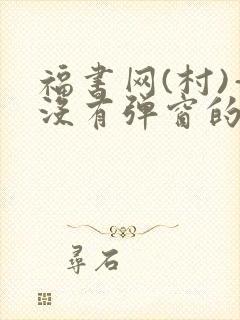 福书网(村)-
没有弹窗的
尋石